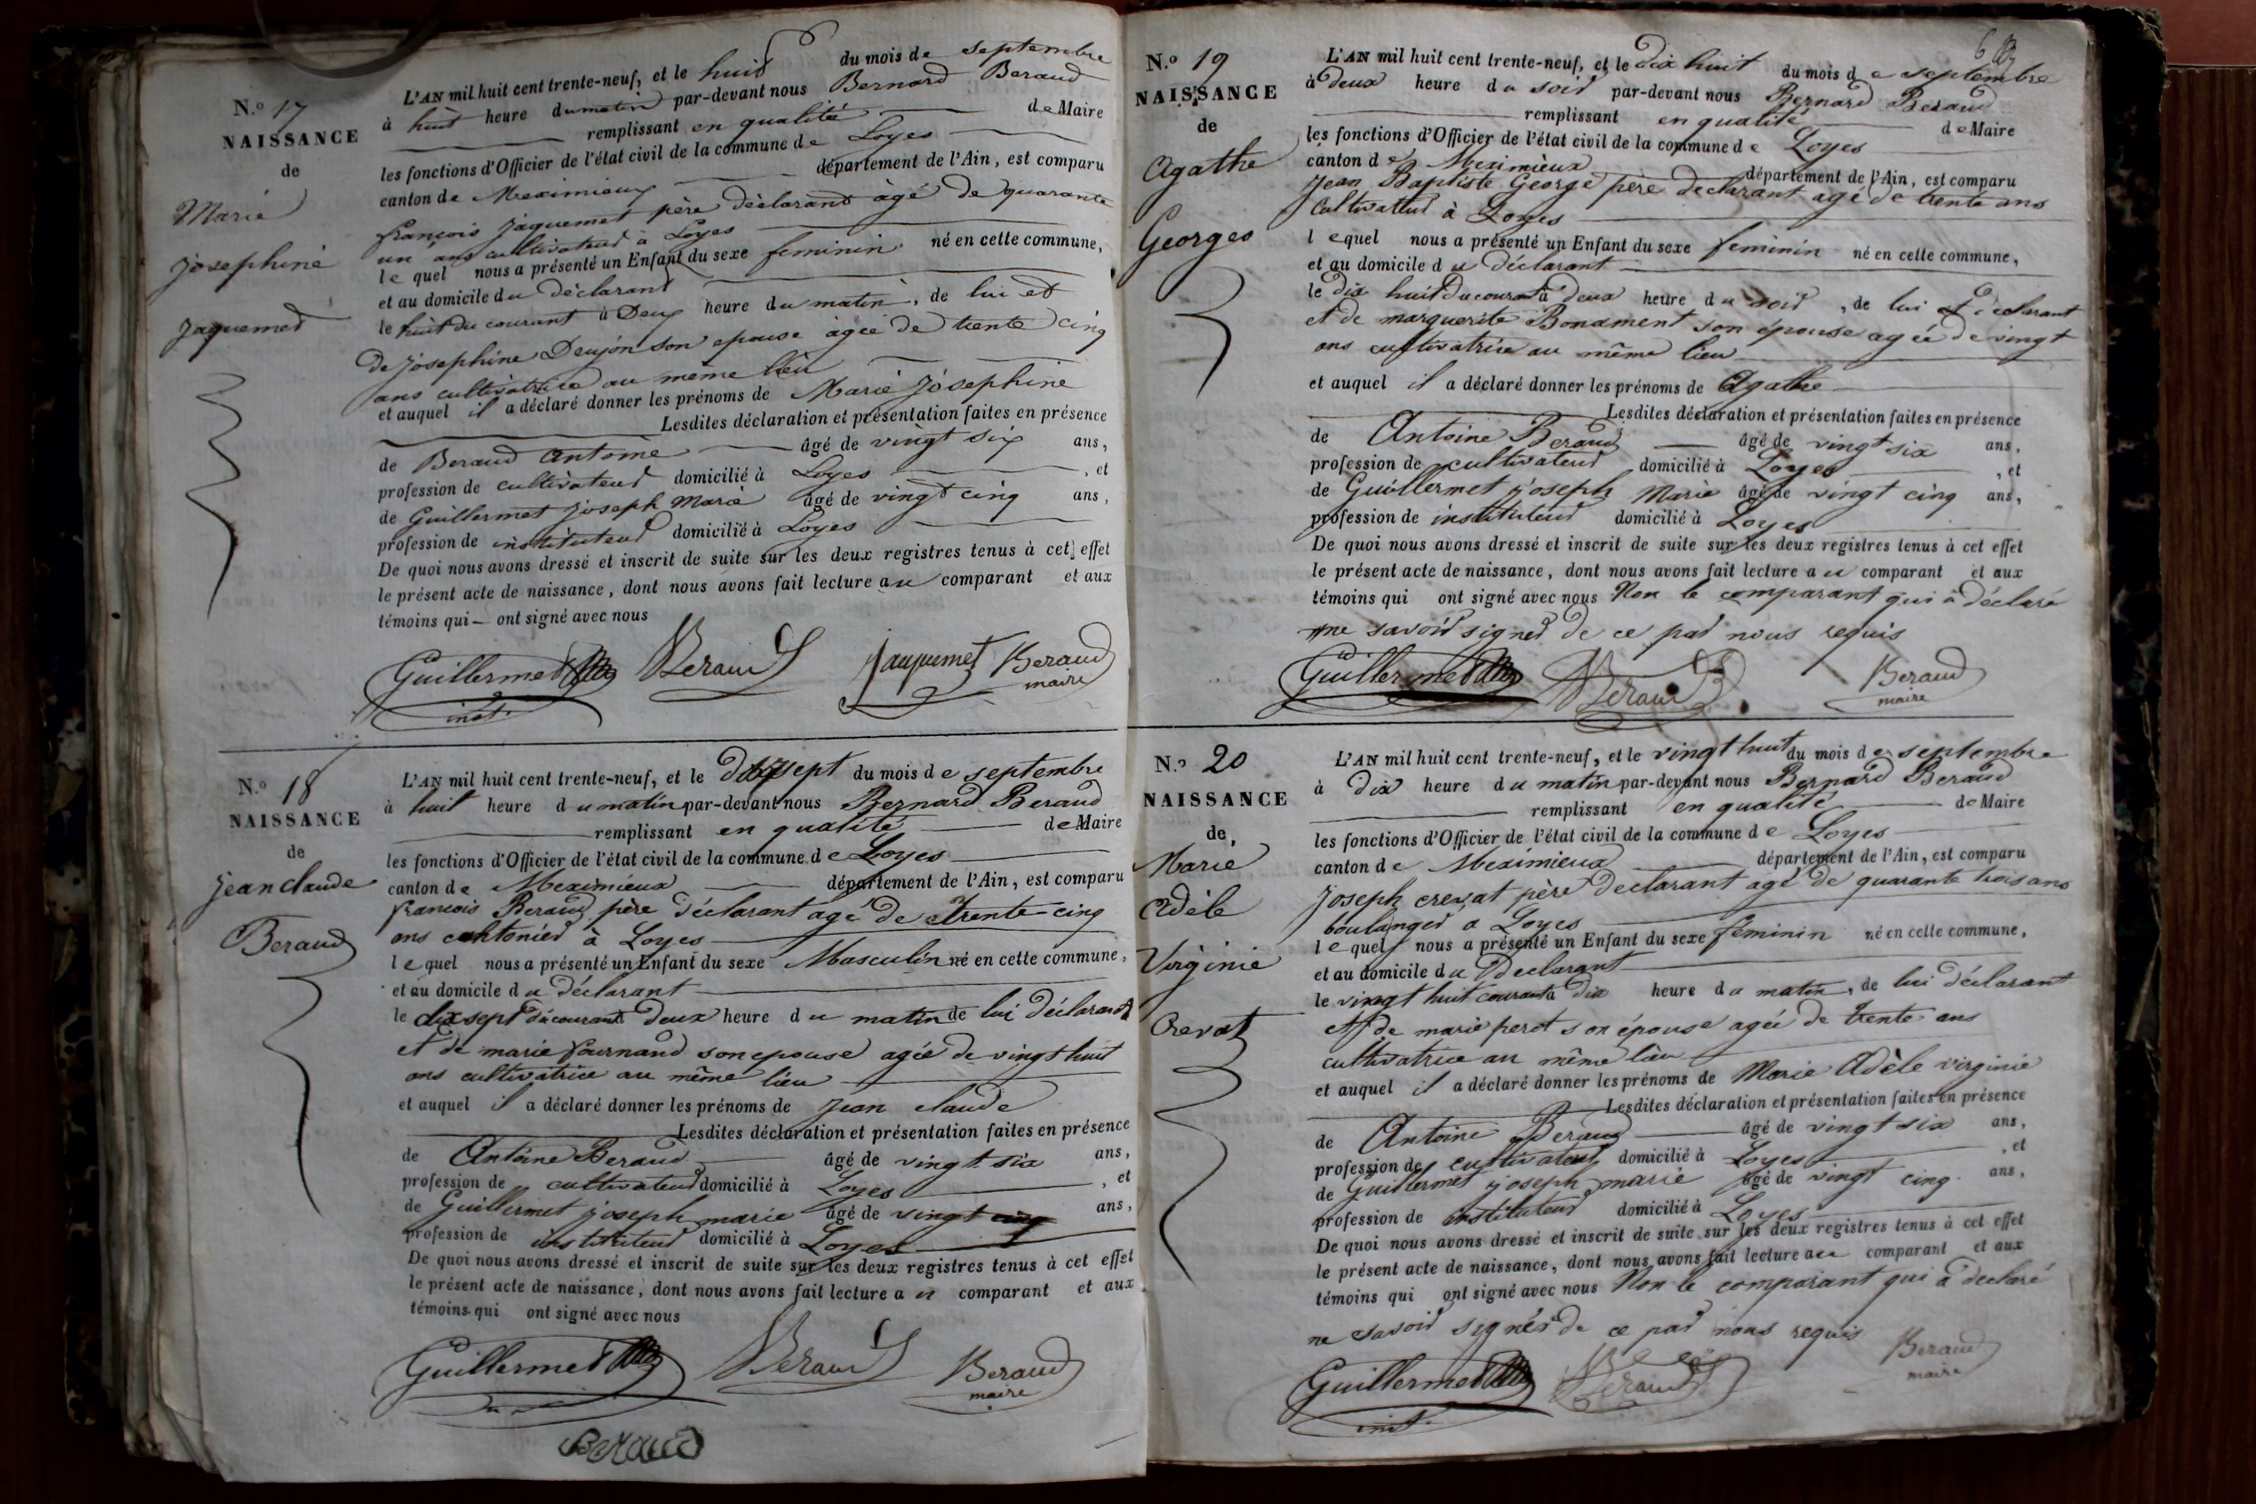 N.o 17
NAISSANCE
de
Marie
Josephine
Jaquemet
L'AN mil huit cent trente-neuf, et le huit du mois de septembre
à huit heure du matin par-devant nous Bernard Beraud
remplissant en qualité de Maire
les fonctions d'Officier de l'état civil de la commune de Loyes
canton de Meximieux département de l'Ain, est comparu
françois Jaquemet père déclarant âgé de quarante
un ans cultivateur à Loyes
le quel nous a présenté un Enfant du sexe feminin né en cette commune,
et au domicile du déclarant
le huit du courant à Deux heure du matin, de lui et
de Josephine Deujon son epouse âgée de trente cinq
ans cultivatrice au même lieu
et auquel il a déclaré donner les prénoms de Marie Josephine
Lesdites déclaration et présentation faites en présence
de Beraud Antoine âgé de vingt six ans,
profession de cultivateur domicilié à Loyes, et
de Guillermet Joseph Marie âgé de vingt cinq ans,
profession de instituteur domicilié à Loyes
De quoi nous avons dressé et inscrit de suite sur les deux registres tenus à cet effet
le présent acte de naissance, dont nous avons fait lecture au comparant et aux
témoins qui ont signé avec nous
Guillermet Beraud Jaquemet Beraud
inst. maire
N.o 18
NAISSANCE
de
Jean claude
Beraud
L'AN mil huit cent trente-neuf, et le dix sept du mois de septembre
à huit heure du matin par-devant nous Bernard Beraud
remplissant en qualité de Maire
les fonctions d'Officier de l'état civil de la commune de Loyes
canton de Meximieux département de l'Ain, est comparu
françois Beraud père déclarant agé de trente cinq
ans cantonier à Loyes
le quel nous a présenté un Enfant du sexe Masculin né en cette commune,
et au domicile du déclarant
le dix sept du courant à deux heure du matin de lui déclarant
et de marie fournand son epouse agée de vingt huit
ans cultivatrice au même lieu
et auquel il a déclaré donner les prénoms de Jean claude
Lesdites déclaration et présentation faites en présence
de Antoine Beraud âgé de vingt six ans,
profession de cultivateur domicilié à Loyes, et
de Guillermet joseph marie âgé de vingt cinq ans,
profession de instituteur domicilié à Loyes
De quoi nous avons dressé et inscrit de suite sur les deux registres tenus à cet effet
le présent acte de naissance, dont nous avons fait lecture au comparant et aux
témoins qui ont signé avec nous
Guillermet Beraud Beraud
maire
Beraud
N.o 19
NAISSANCE
de
Agathe
Georges
6
L'AN mil huit cent trente-neuf, et le dix huit du mois de septembre
à deux heure du soir par-devant nous Bernard Beraud
remplissant en qualité de Maire
les fonctions d'Officier de l'état civil de la commune de Loyes
canton de Meximieux département de l'Ain, est comparu
Jean Baptiste George père declarant agé de trente ans
Cultivateur à Loyes
lequel nous a présenté un Enfant du sexe feminin né en cette commune,
et au domicile du déclarant
le dix huit du courant à deux heure du soir, de lui declarant
et de marguerite Bonament son épouse agée de vingt
ans cultivatrice au même lieu
et auquel il a déclaré donner les prénoms de Agathe
Lesdites déclaration et présentation faites en présence
de Antoine Beraud âgé de vingt six ans,
profession de cultivateur domicilié à Loyes, et
de Guillermet joseph Marie âgé de vingt cinq ans,
profession de instituteur domicilié à Loyes
De quoi nous avons dressé et inscrit de suite sur les deux registres tenus à cet effet
le présent acte de naissance, dont nous avons fait lecture au comparant et aux
témoins qui ont signé avec nous Non le comparant qui a déclaré
ne savoir signer de ce par nous requis
Guillermet Beraud Beraud
maire
N.o 20
NAISSANCE
de
Marie
Adèle
Virginie
Crevat
L'AN mil huit cent trente-neuf, et le vingt huit du mois de septembre
à dix heure du matin par-devant nous Bernard Beraud
remplissant en qualité de Maire
les fonctions d'Officier de l'état civil de la commune de Loyes
canton de Meximieux département de l'Ain, est comparu
Joseph crevat père declarant agé de quarante trois ans
boulanger à Loyes
lequel nous a présenté un Enfant du sexe féminin né en cette commune,
et au domicile du declarant
le vingt huit courant à dix heure du matin, de lui déclarant
et de marie peret son épouse agée de trente ans
cultivatrice au même lieu
et auquel il a déclaré donner les prénoms de Marie Adèle virginie
Lesdites déclaration et présentation faites en présence
de Antoine Beraud âgé de vingt six ans,
profession de cultivateur domicilié à Loyes, et
de Guillermet joseph marie âgé de vingt cinq ans,
profession de instituteur domicilié à Loyes
De quoi nous avons dressé et inscrit de suite sur les deux registres tenus à cet effet
le présent acte de naissance, dont nous avons fait lecture au comparant et aux
témoins qui ont signé avec nous Non le comparant qui a declaré
ne savoir signer de ce par nous requis
Guillermet Beraud Beraud
inst. maire